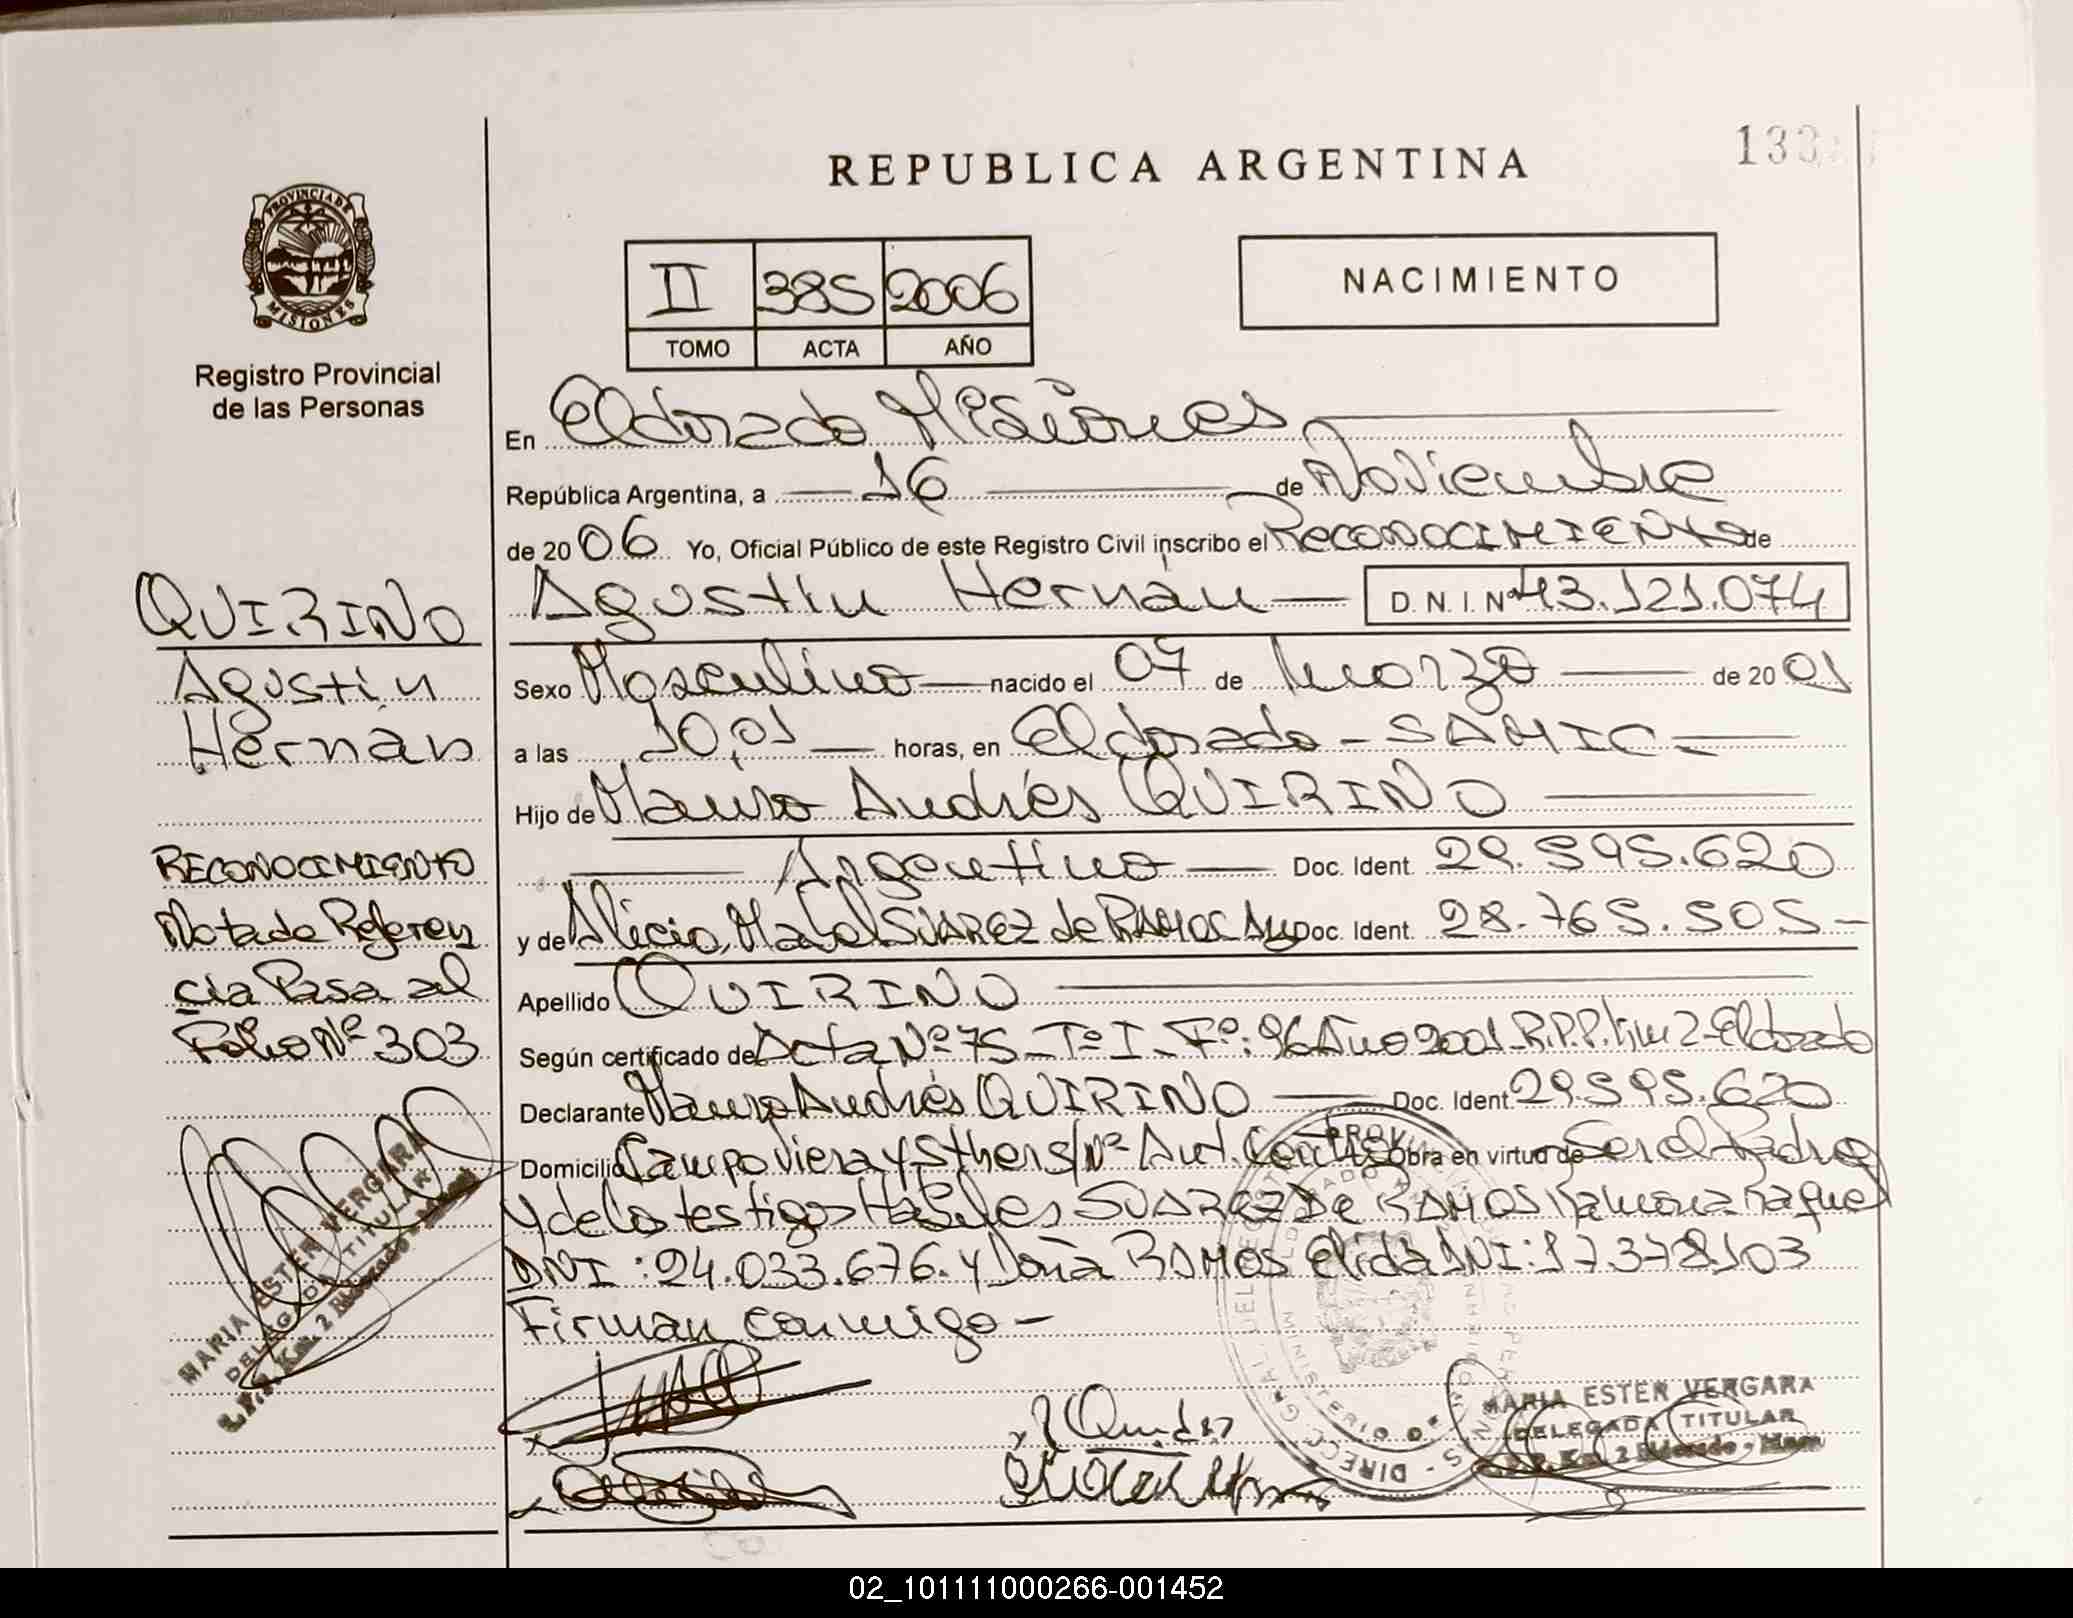 REPUBLICA ARGENTINA
133
PROVINCIA DE
MISIONES
Registro Provincial
de las Personas
II 385 2006
TOMO ACTA AÑO
NACIMIENTO
En Eldorado Misiones
República Argentina, a 16 de Noviembre
de 2006 Yo, Oficial Público de este Registro Civil inscribo el RECONOCIMIENTO de
Agustin Hernán D.N.I. Nº 43.121.074
Sexo Masculino nacido el 07 de Marzo de 2001
a las 10,01 horas, en Eldorado - SAMIC -
Hijo de Mauro Andrés QUIRINO
Argentino Doc. Ident. 29.595.620
y de Alicia Mabel SUAREZ de RAMOS Doc. Ident. 28.765.505 -
Apellido QUIRINO
Según certificado de Acta Nº 75 - Tº I - Fº: 96 Año 2001 R.P.P. km 2 - Eldorado
Declarante Mauro Andrés QUIRINO Doc. Ident. 29.595.620
Domicilio Campo Viera y Sthers/nº Obra en virtud de Ser el Padre
y de los testigos Habiles SUAREZ De RAMOS Ramona Raquel
DNI: 24.033.676. y Doña RAMOS Elida DNI: 17.378.103
Firman conmigo -
QUIRINO
Agustin
Hernán
RECONOCIMIENTO
Nota de Referen
cia Pasa al
Folio Nº 303
MARIA ESTER VERGARA
DELEGADA TITULAR
R.P.P. Km. 2 Eldorado - Mnes
MARIA ESTER VERGARA
DELEGADA TITULAR
R.P.P. Km. 2 Eldorado - Mnes
02_101111000266-001452